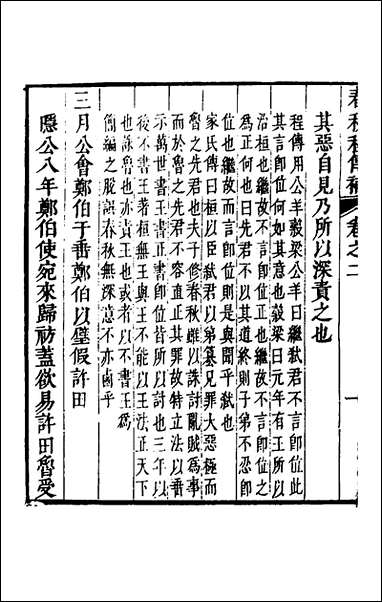 春秋程傳補 卷之二 一
其惡自見乃所以深責之也
程傳用公羊穀梁公羊曰繼弒君不言即位此
其言即位何如其意也穀梁曰元年有王所以
治桓也繼故不言即位正也繼故不言即位之
為正何也曰先君不以其道終則子弟不忍即
位也繼故而言即位則是與聞乎弒也
家氏傳曰桓以臣弒君以弟篡兄罪大惡極而
魯之先君也夫子修春秋雖以誅討亂賊為事
而於魯之先君不容直正其罪故特立法以垂
示萬世書王正書即位皆所以討也三年以
後不書王著桓無王與王不能以王法正天下
也誅魯也亦責王也或者以不書王為
簡編之脫誤春秋無深意不亦鹵乎
三月公會鄭伯于垂鄭伯以璧假許田
隱公八年鄭伯使宛來歸祊蓋欲易許田魯受